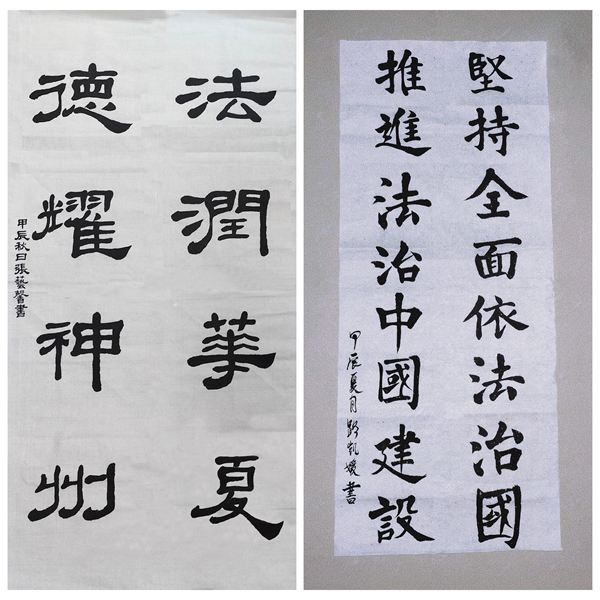 法潤華夏
德耀神州
甲辰秋日張藝馨書
堅持全面依法治國
推進法治中國建設
甲辰夏月路凱媛書